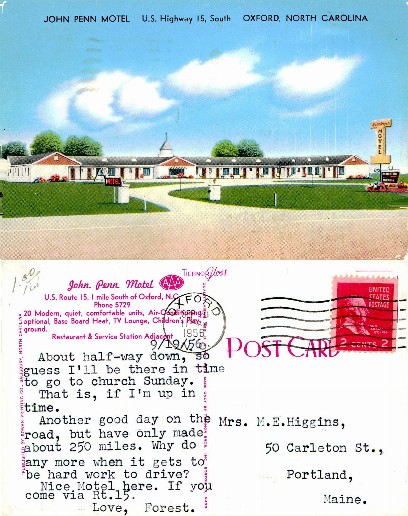 JOHN PENN MOTEL U.S. Highway 15, South OXFORD, NORTH CAROLINA
MOTEL
John Penn Motel AAA
U.S. Route 15, 1 mile South of Oxford, N.C.
Phone 5729
20 Modern, quiet, comfortable units, Air-Conditioning
optional, Base Board Heat, TV Lounge, Children's Play-
ground.
Restaurant & Service Station Adjacent
OXFORD
1956
9/19/56
UNITED
STATES
POSTAGE
2 CENTS 2
POST CARD
About half-way down, so
guess I'll be there in time
to go to church Sunday.
That is, if I'm up in
time.
Another good day on the
road, but have only made
about 250 miles. Why do
any more when it gets to
be hard work to drive?
Nice Motel here. If you
come via Rt.15.
Love, Forest.
Mrs. M.E.Higgins,
50 Carleton St.,
Portland,
Maine.